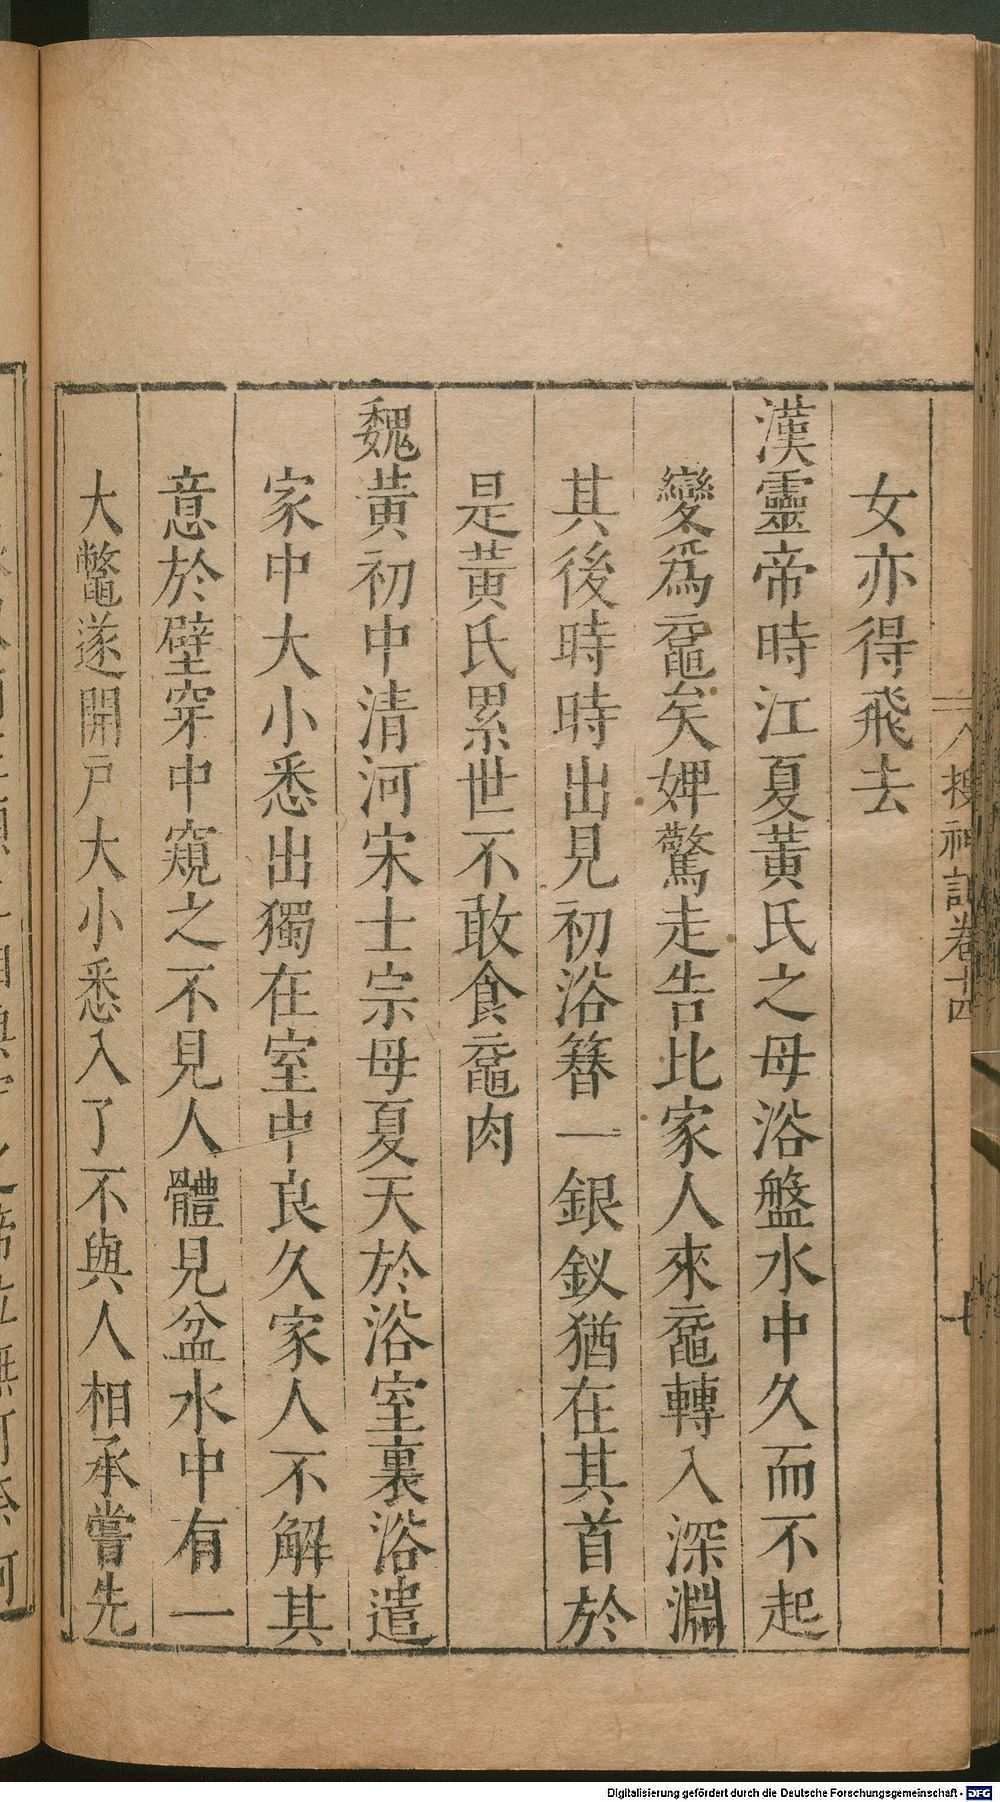 搜神記卷十四
十
女亦得飛去
漢靈帝時江夏黃氏之母浴盤水中久而不起
變爲黿矣婢驚走告比家人來黿轉入深淵
其後時時出見初浴簪一銀釵猶在其首於
是黃氏累世不敢食黿肉
魏黃初中清河宋士宗母夏天於浴室裏浴遣
家中大小悉出獨在室中良久家人不解其
意於壁穿中窺之不見人體見盆水中有一
大鼈遂開戸大小悉入了不與人相承嘗先
Digitalisierung gefördert durch die Deutsche Forschungsgemeinschaft - DFG